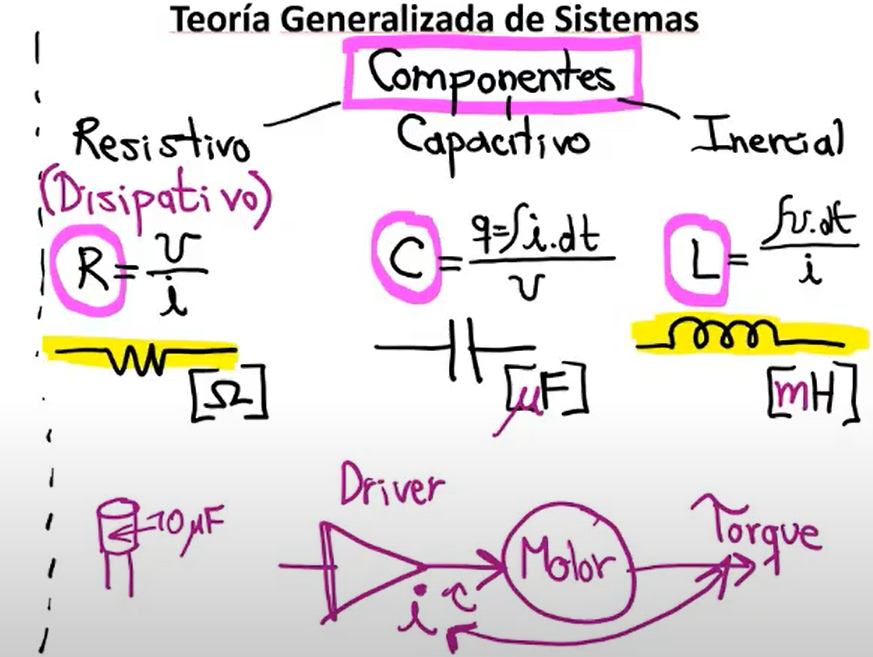 Teoría Generalizada de Sistemas
Componentes
Resistivo
(Disipativo)
R = v / i
[Ω]
Capacitivo
C = q=∫i.dt / v
[μF]
Inercial
L = ∫v.dt / i
[mH]
10μF
Driver
i
Motor
Torque